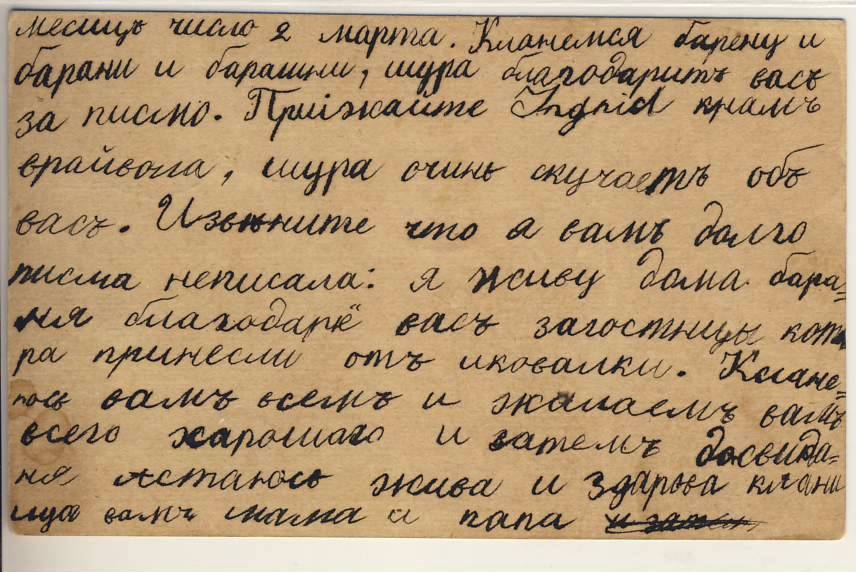 месицъ число 2 марта. Кланемся баренцу и
барани и барашни, шура благодаритъ васъ
за писмо. Приіжайте Ingrid кнамъ
врайвола, шура очинь скучаетъ объ
васъ. Извѣните что я вамъ долго
писма неписала: я живу дома. бара=
ня благодарё васъ загостинцы кот
ра принесли отъ иковалки. Клане=
юсь вамъ всемъ и жалаемъ вамъ
всего харошаго и затемъ досвида=
ня астаюсь жива и здарова клани
ица вамъ мама и папа